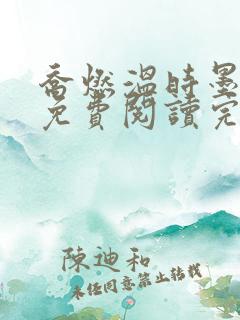 喬燃溫時墨
免費閱讀完
陳迪和
未經同意禁止轉載